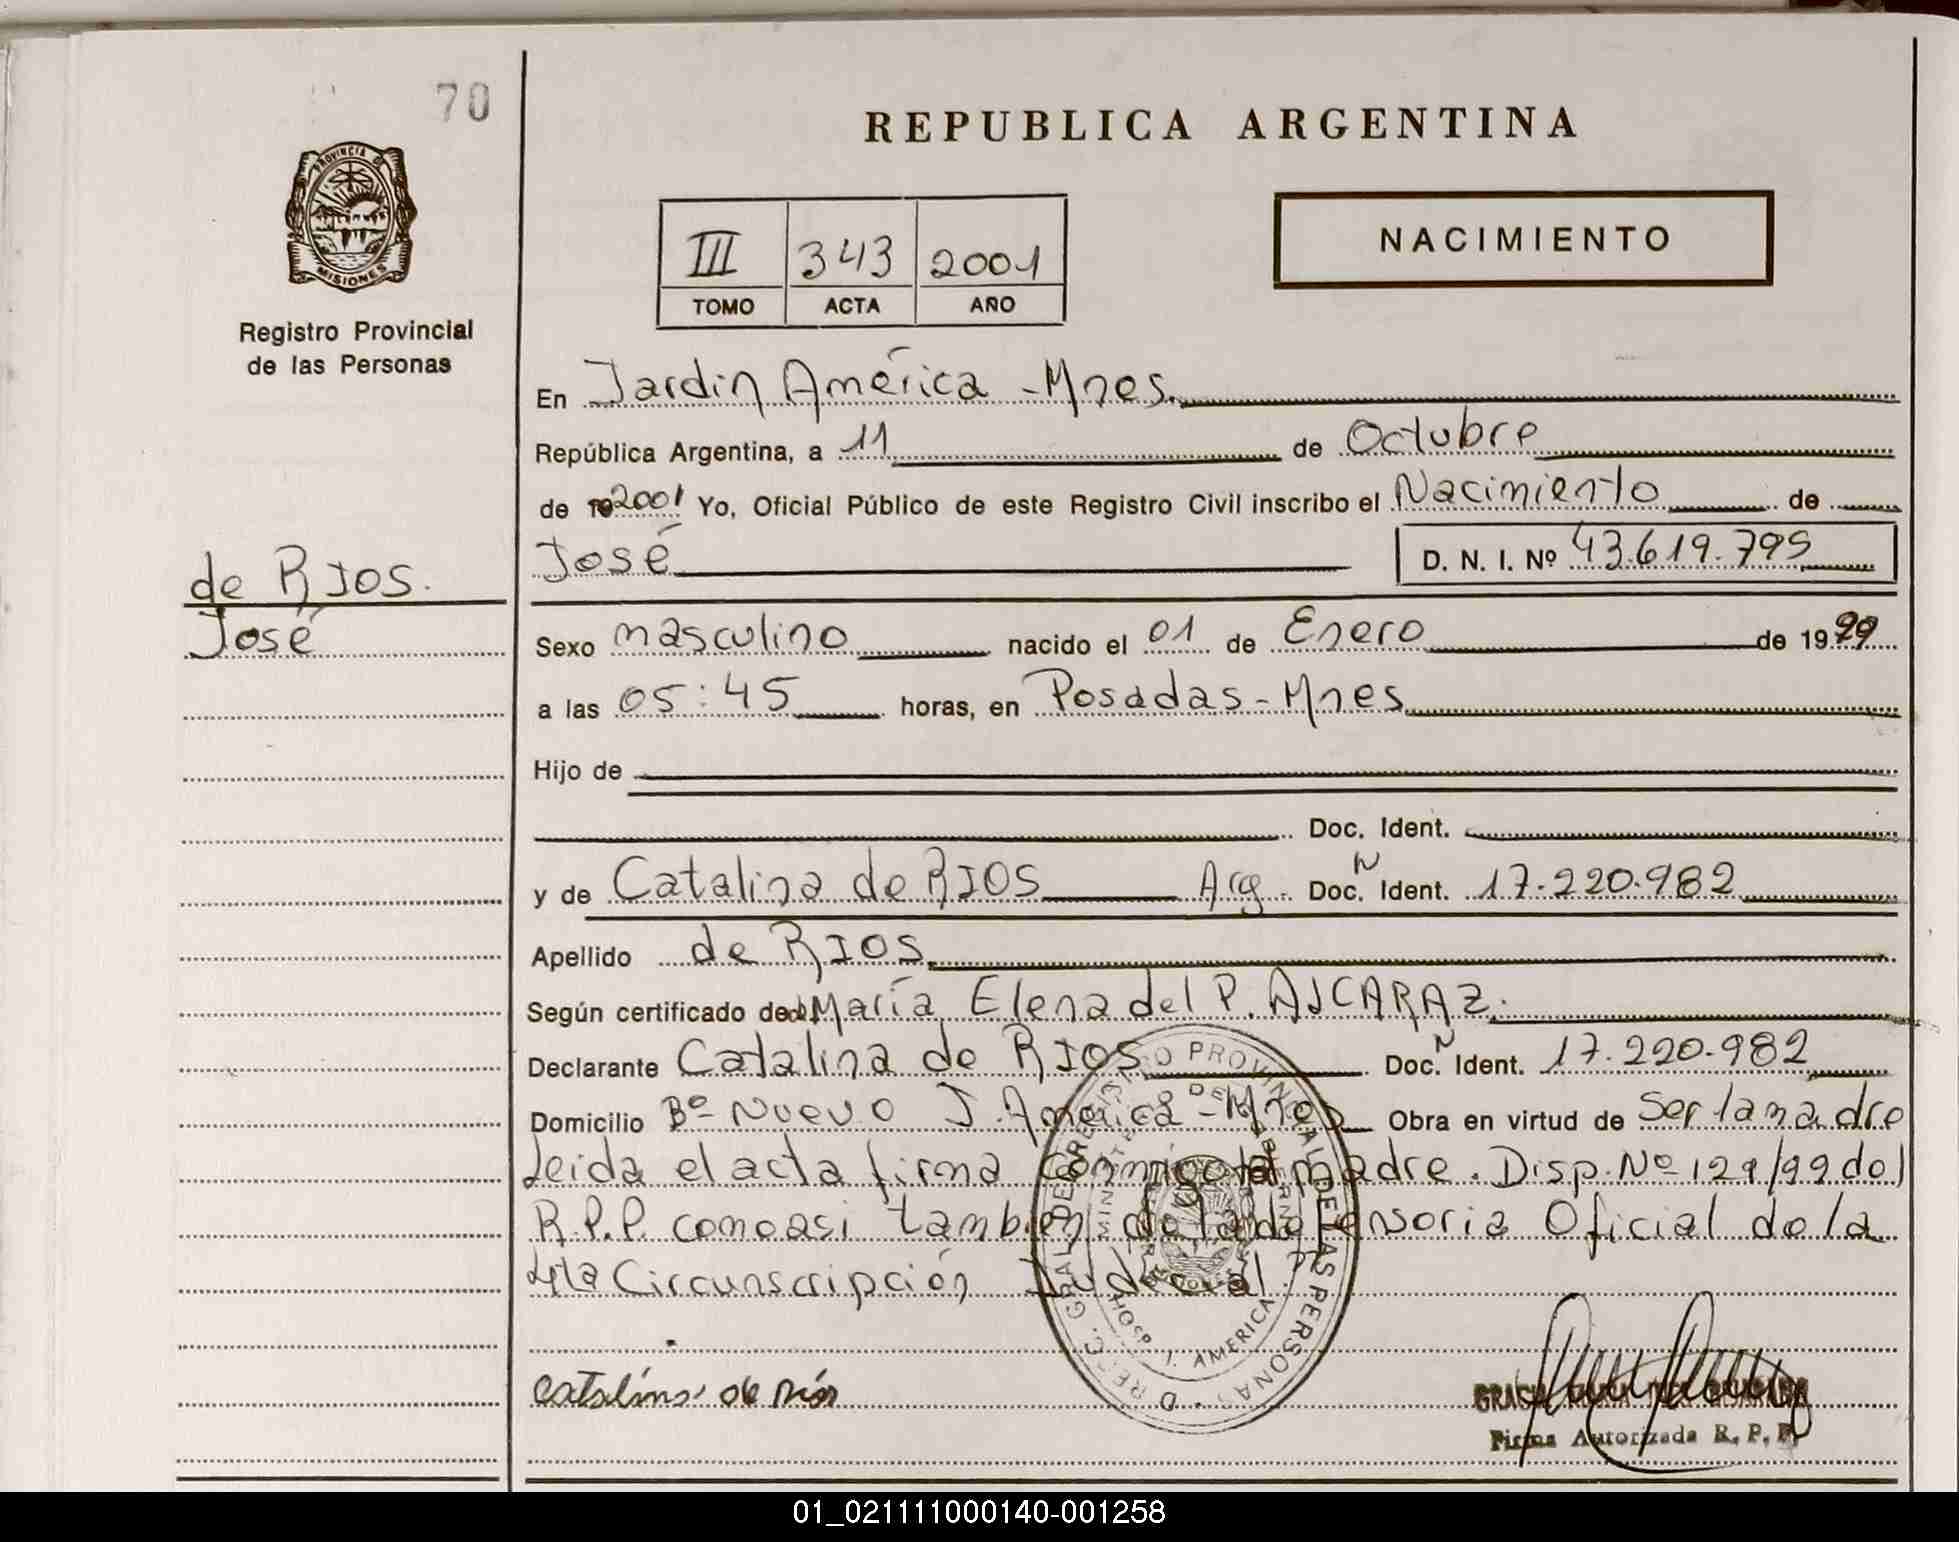 70
REPUBLICA ARGENTINA
PROVINCIA DE
MISIONES
Registro Provincial
de las Personas
III 343 2001
TOMO ACTA AÑO
NACIMIENTO
En Jardin América - Mnes.
República Argentina, a 11 de Octubre
de 2001 Yo, Oficial Público de este Registro Civil inscribo el Nacimiento de
José D. N. I. Nº 43.619.799
de RIOS.
José
Sexo masculino nacido el 01 de Enero de 1999
a las 05:45 horas, en Posadas - Mnes
Hijo de
Doc. Ident.
y de Catalina de RIOS Arg. Doc. N Ident. 17.220.982
Apellido de RIOS.
Según certificado de María Elena del P. ALCARAZ.
Declarante Catalina de RIOS Doc. N Ident. 17.220.982
Domicilio Bº Nuevo J. América - Mnes Obra en virtud de Ser la madre
Leida el acta firma conmigo la madre. Disp. Nº 129/99 del
R.P.P. como asi tambien de la defensoria Oficial de la
4ta Circunscripción Judicial
REGISTRO PROVINCIAL DE LAS PERSONAS
J. AMERICA
catalina de rios
Firma Autorizada R. P. P.
01_021111000140-001258